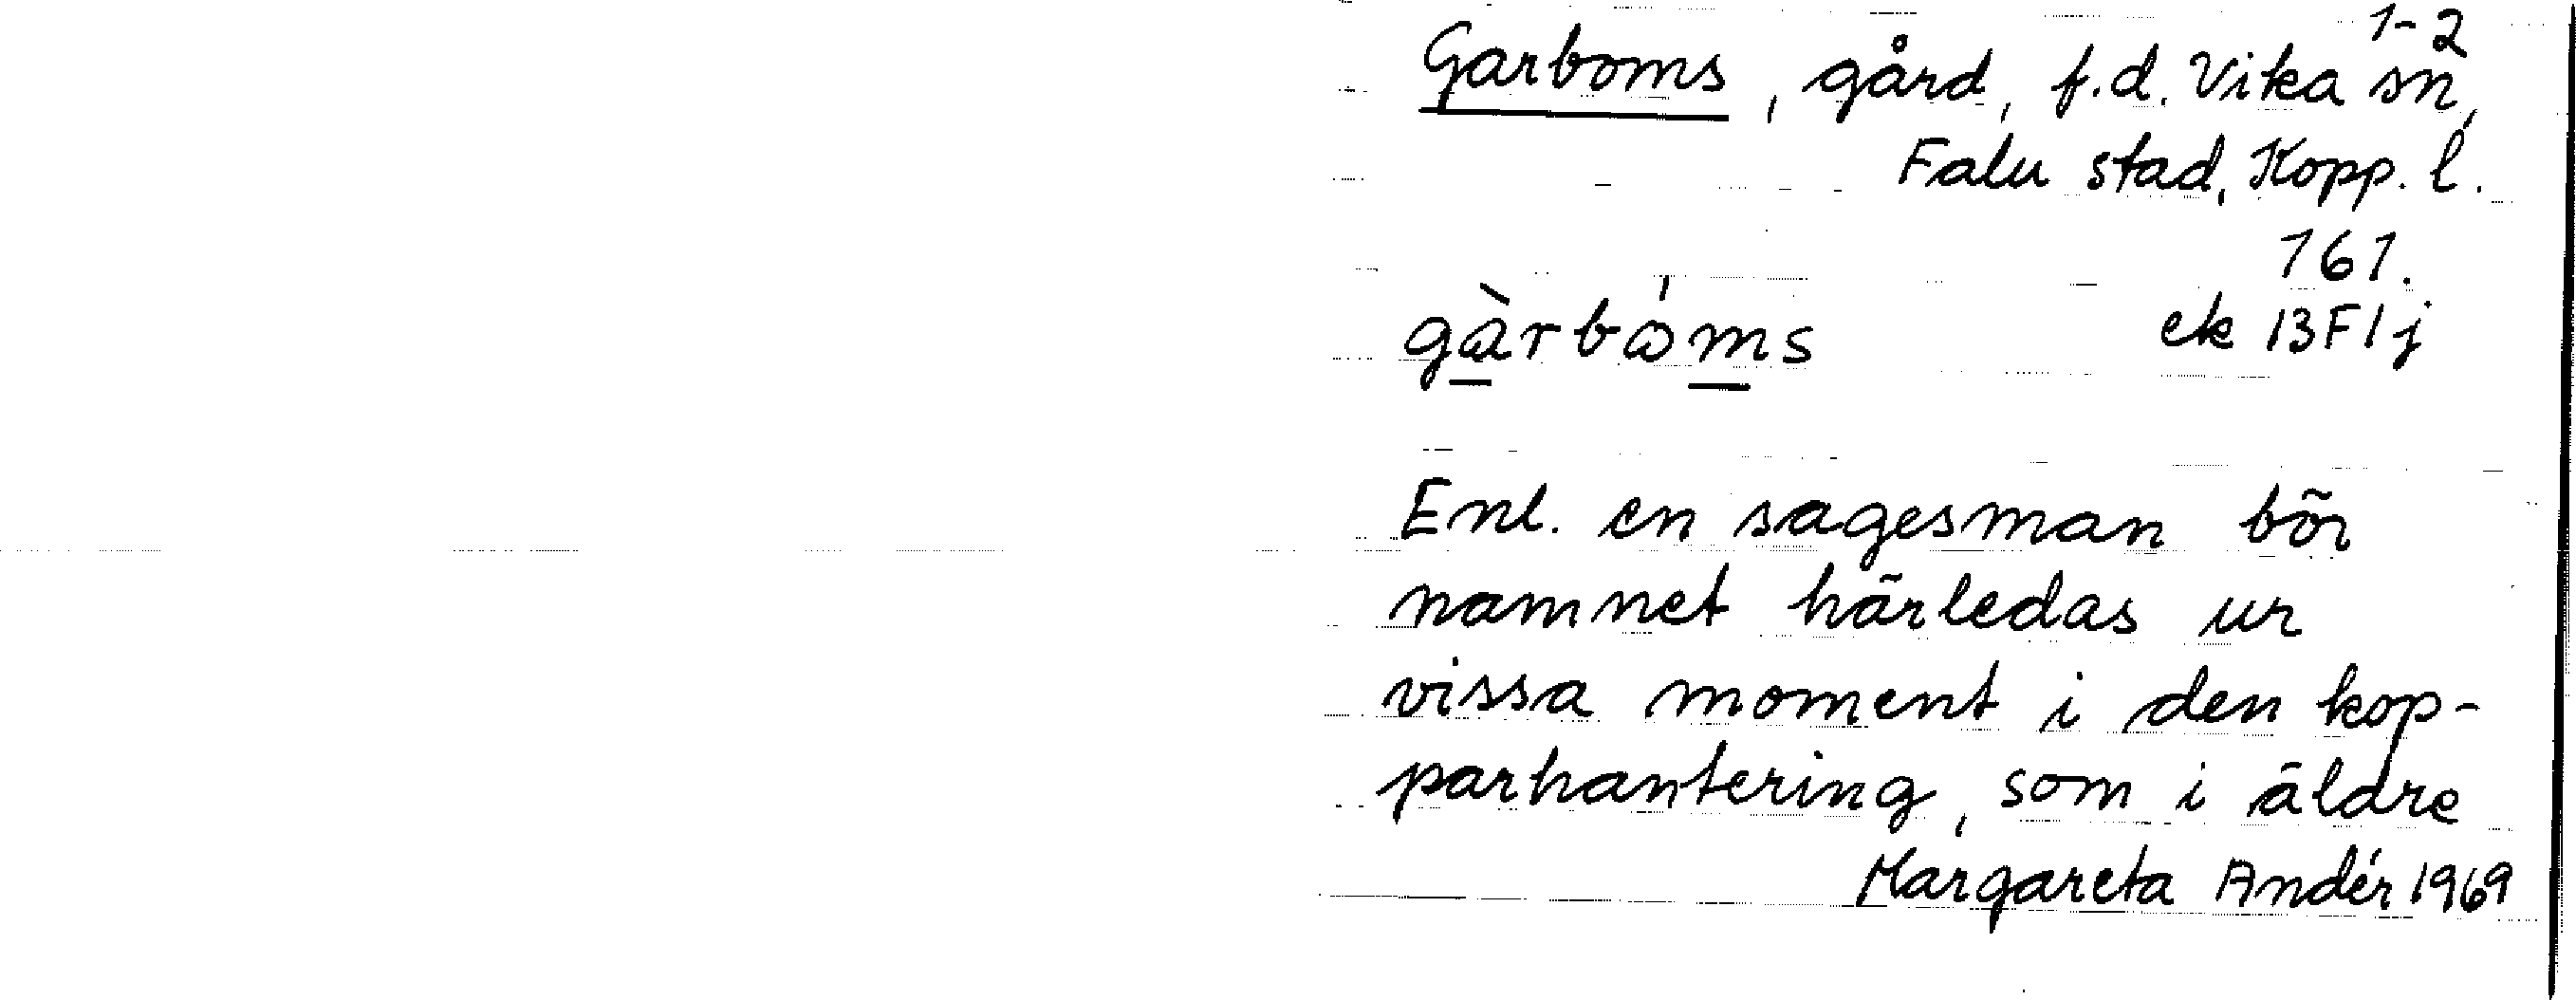 1-2
Garboms, gård, f.d. Vika sn,
Falu stad, Kopp. l.
161.
gàrbòms ek 13F1j
Enl. en sagesman bör
namnet härledas ur
vissa moment i den kop-
parhantering, som i äldre
Margareta Andér 1969